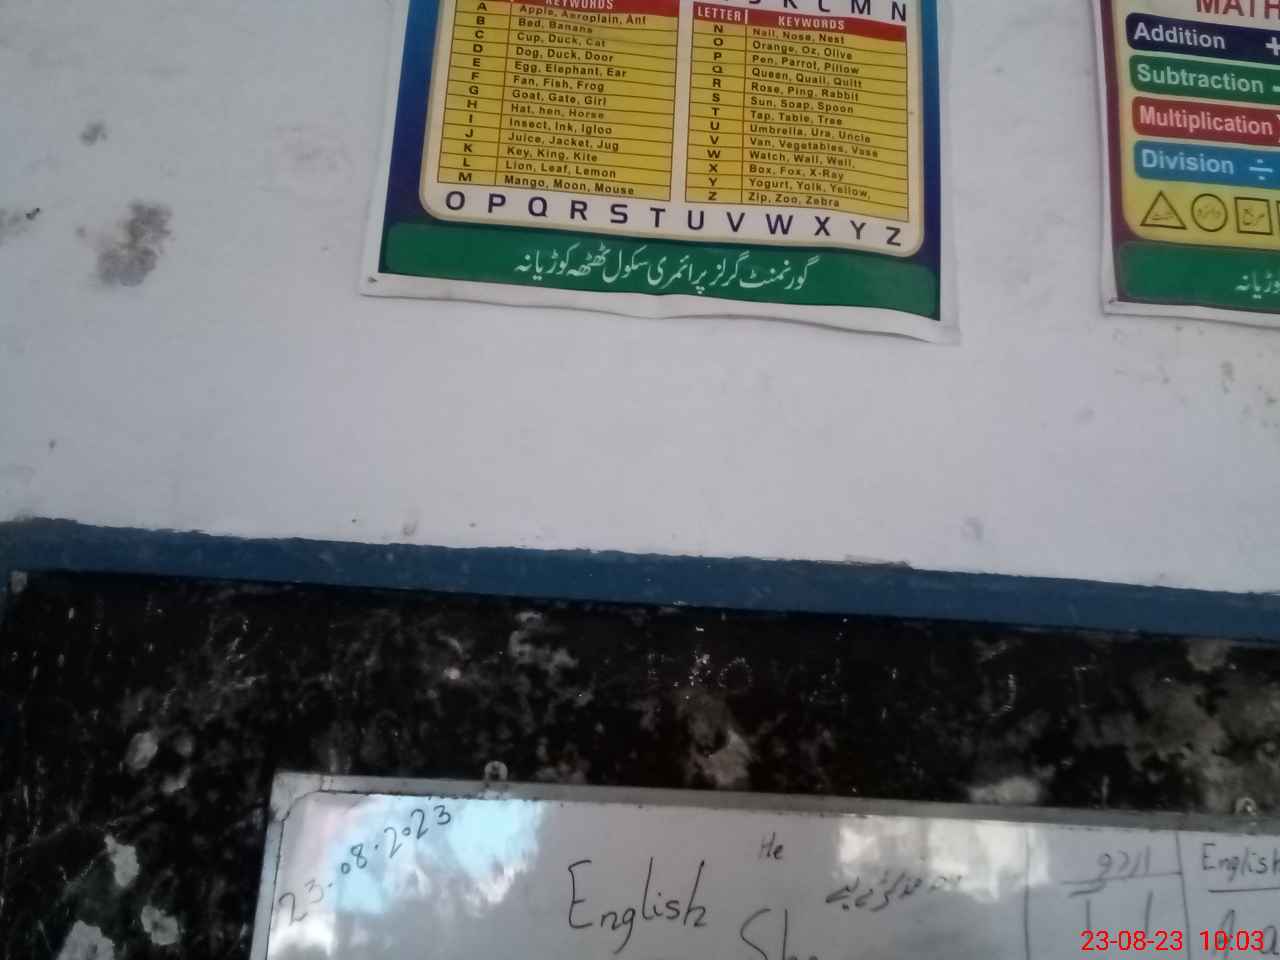 J K L M N
KEYWORDS
A Apple, Aeroplain, Ant
B Bed, Banana
C Cup, Duck, Cat
D Dog, Duck, Door
E Egg, Elephant, Ear
F Fan, Fish, Frog
G Goat, Gate, Girl
H Hat, hen, Horse
I Insect, Ink, Igloo
J Juice, Jacket, Jug
K Key, King, Kite
L Lion, Leaf, Lemon
M Mango, Moon, Mouse
LETTER KEYWORDS
N Nail, Nose, Nest
O Orange, Oz, Olive
P Pen, Parrot, Pillow
Q Queen, Quail, Quilt
R Rose, Ping, Rabbit
S Sun, Soap, Spoon
T Tap, Table, Tree
U Umbrella, Ura, Uncle
V Van, Vegetables, Vase
W Watch, Wall, Well,
X Box, Fox, X-Ray
Y Yogurt, Yolk, Yellow,
Z Zip, Zoo, Zebra
O P Q R S T U V W X Y Z
گورنمنٹ گرلز پرائمری سکول ٹھٹھہ کوڑیانہ
MATH
Addition +
Subtraction -
Multiplication X
Division ÷
مثلث دائرہ مربع
کوڑیانہ
23-08-2023
English
He
She
اردو
English
23-08-23 10:03